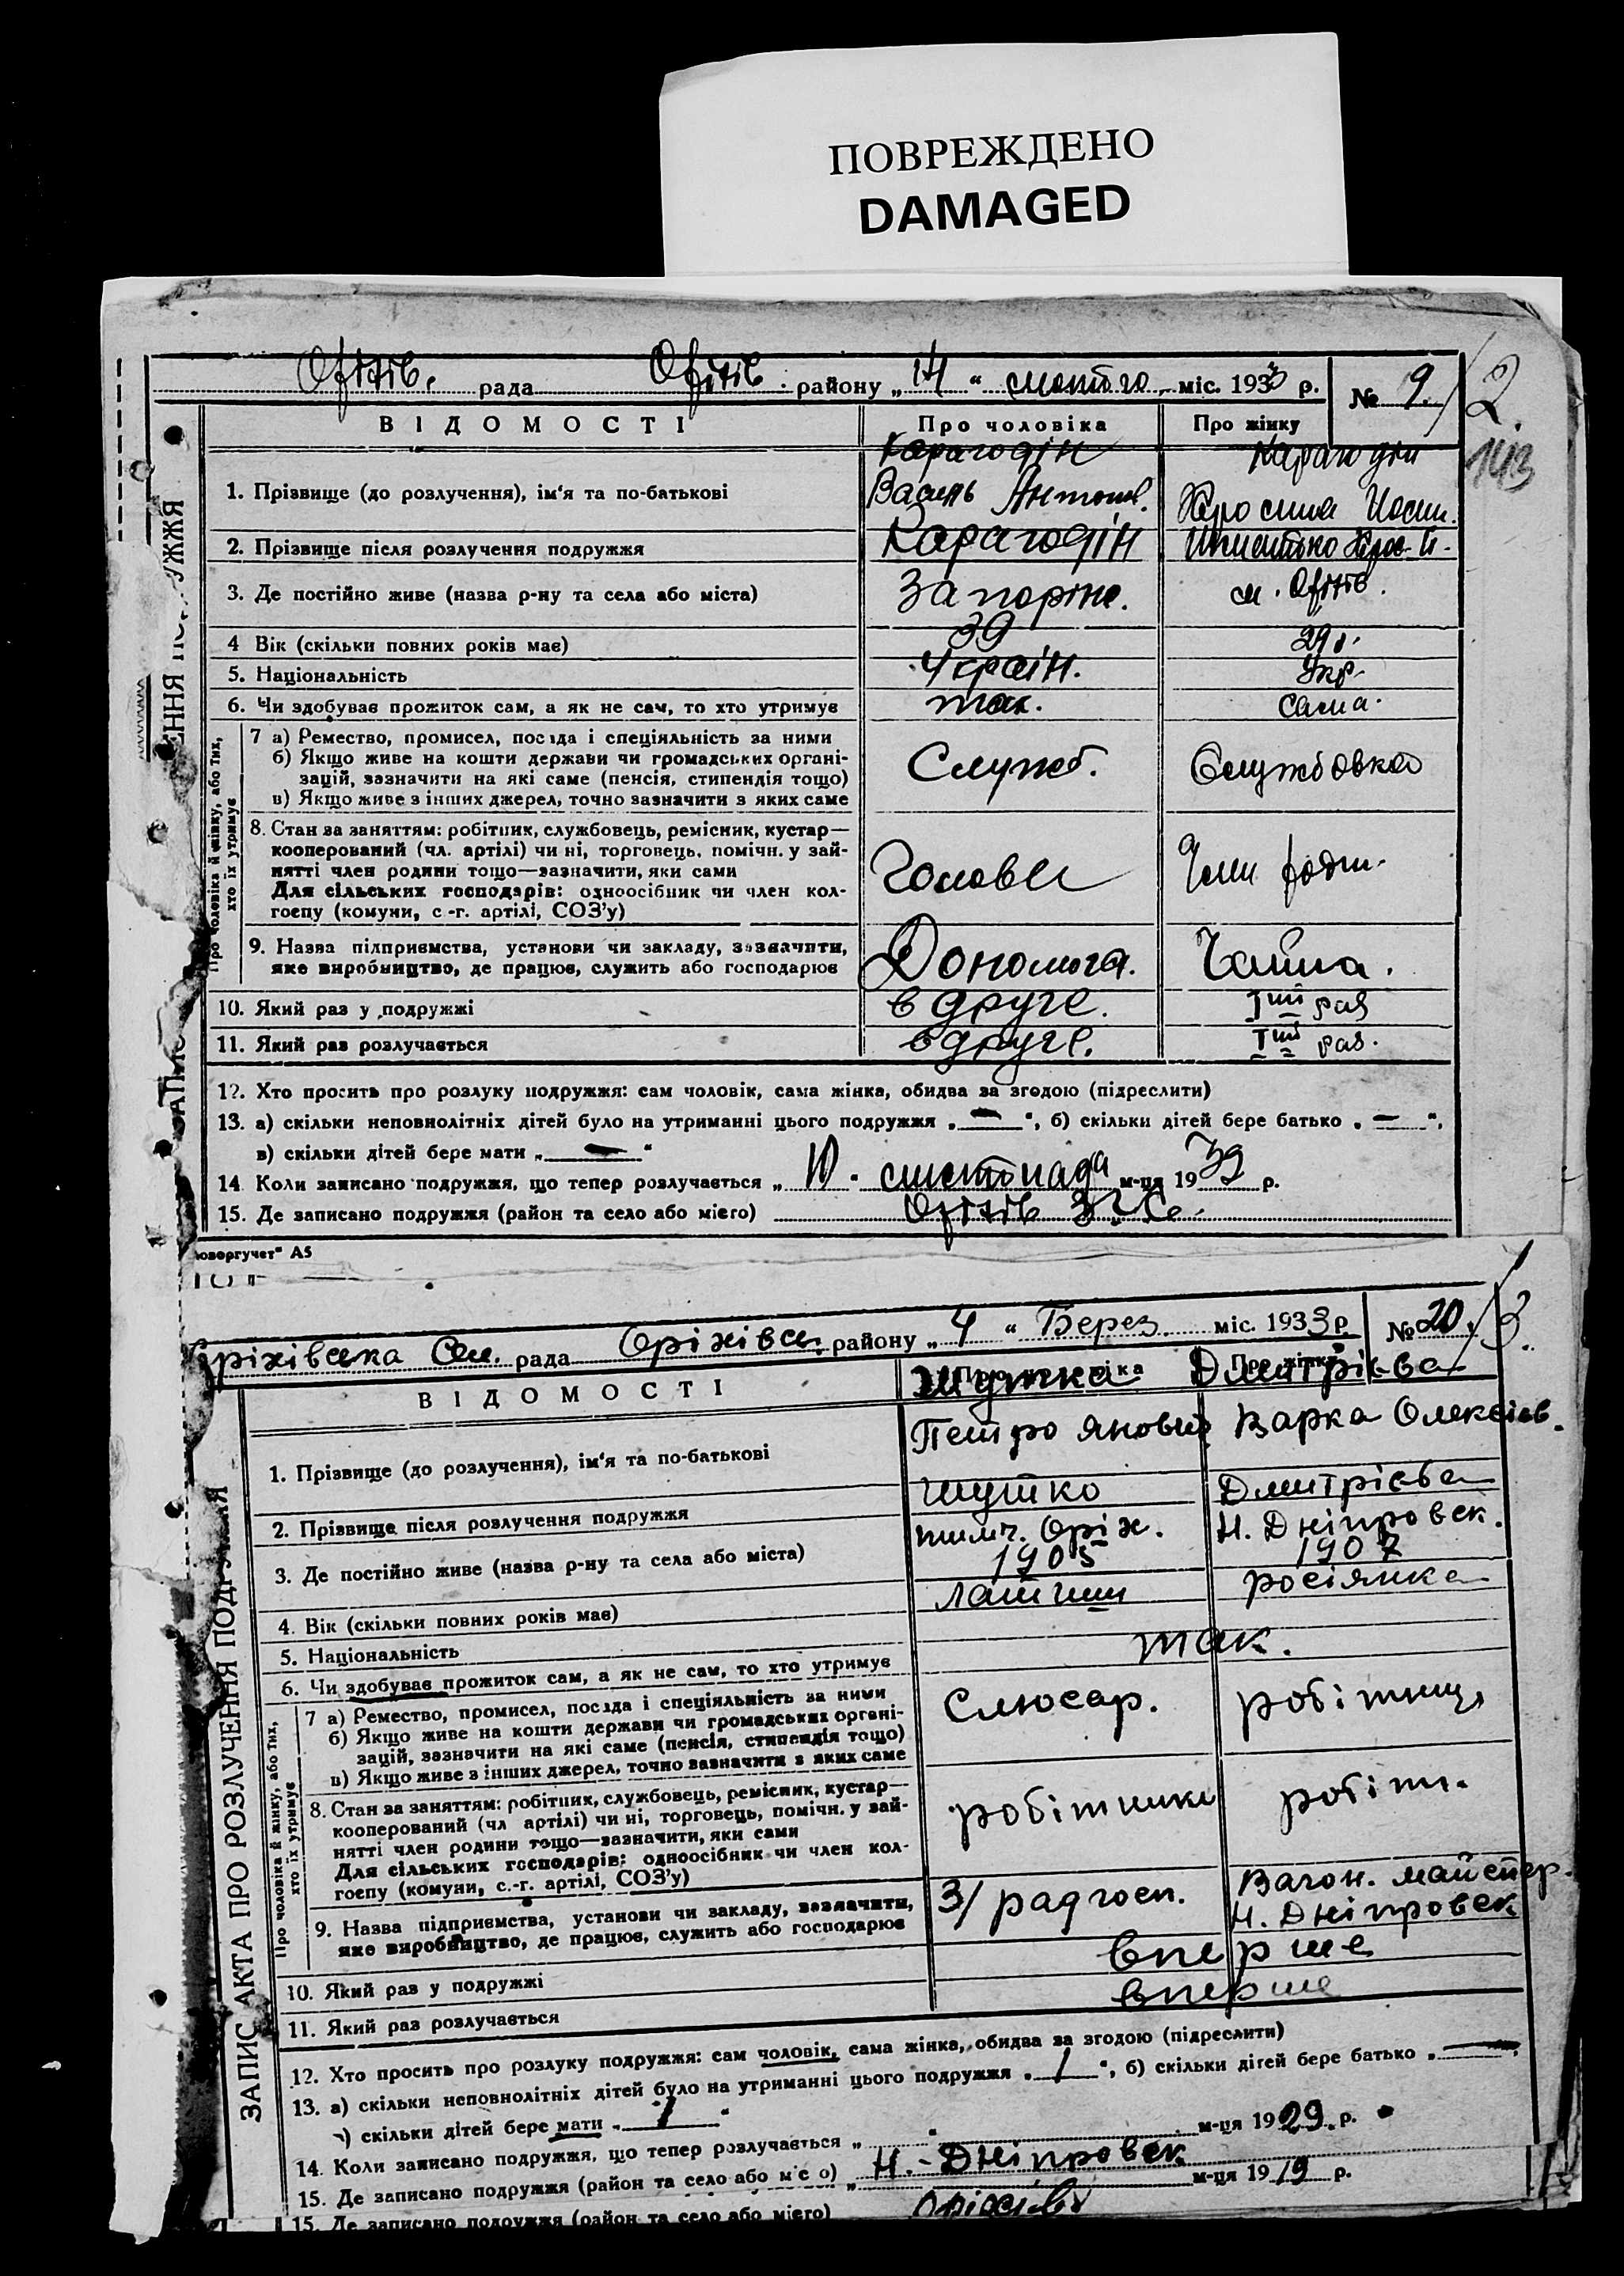 ПОВРЕЖДЕНО
DAMAGED
рада району „14“ лютого міс. 1933 р. № 9. / 2.
143
ВІДОМОСТІ Про чоловіка Про жінку
Карагодін Карагодін
1. Прізвище (до розлучення), ім'я та по-батькові Василь Антонов.
2. Прізвище після розлучення подружжя Карагодін
3. Де постійно живе (назва р-ну та села або міста) Запоріже. м.
4 Вік (скільки повних років має) 39 29 р.
5. Національність Украін. Укр.
6. Чи здобував прожиток сам, а як не сам, то хто утримує так. сама.
Про чоловіка й жінку, або тих, хто їх утримує
7 а) Ремество, промисел, посада і спеціяльність за ними
б) Якщо живе на кошти держави чи громадських органі-
зацій, зазначити на які саме (пенсія, стипендія тощо) Служб. Службовка
в) Якщо живе з інших джерел, точно зазначити з яких саме
8. Стан за заняттям: робітник, службовець, ремісник, кустар—
кооперований (чл. артілі) чи ні, торговець, помічн. у зай-
нятті член родини тощо—зазначити, яки сами Голова Член родин.
Для сільських господарів: одноосібник чи член кол-
госпу (комуни, с.-г. артілі, СОЗ'у)
9. Назва підприємства, установи чи закладу, зазначити,
яке виробництво, де працює, служить або господарює Допомога. Чайна.
10. Який раз у подружжі в друге. Iший раз
11. Який раз розлучається вдруге. Iший раз.
12. Хто просить про розлуку подружжя: сам чоловік, сама жінка, обидва за згодою (підреслити)
13. а) скільки неповнолітніх дітей було на утриманні цього подружжя „ — “, б) скільки дітей бере батько „ — “,
в) скільки дітей бере мати „ — “
14 Коли записано подружжя, що тепер розлучається „ 10. листопада м-ця 19 р.
15. Де записано подружжя (район та село або місто) ЗАГС
A5
Оріхівська рада Оріхівськ. району „4“ Берез. міс. 1933 р. № 20. / 3.
ЗАПИС АКТА ПРО РОЗЛУЧЕННЯ ПОДРУЖЖЯ
ВІДОМОСТІ Шутка Дмитрієва
1. Прізвище (до розлучення), ім'я та по-батькові Петро Яновыч Варка Олексієв.
2. Прізвище після розлучення подружжя Шутко Дмитрієва
3. Де постійно живе (назва р-ну та села або міста) тимч. Оріх. Н. Дніпровск.
4. Вік (скільки повних років має) 1905 1907
5. Національність латиш росіянка
6. Чи здобував прожиток сам, а як не сам, то хто утримує так.
Про чоловіка й жінку, або тих, хто їх утримує
7 а) Ремество, промисел, посада і спеціяльність за ними
б) Якщо живе на кошти держави чи громадських органі-
зацій, зазначити на які саме (пенсія, стипендія тощо) Слюсар. робітниця
в) Якщо живе з інших джерел, точно зазначити з яких саме
8. Стан за заняттям: робітник, службовець, ремісник, кустар—
кооперований (чл артілі) чи ні, торговець, помічн. у зай-
нятті член родини тощо—зазначити, яки сами робітник робітн.
Для сільських господарів: одноосібник чи член кол-
госпу (комуни, с.-г. артілі, СОЗ'у)
9. Назва підприємства, установи чи закладу, зазначити, З/радгосп. Вагон. майстер.
яке виробництво, де працює, служить або господарює Н. Дніпровск
10. Який раз у подружжі вперше
11. Який раз розлучається вперше
12. Хто просить про розлуку подружжя: сам чоловік, сама жінка, обидва за згодою (підреслити)
13. а) скільки неповнолітніх дітей було на утриманні цього подружжя „ 1 “, б) скільки дітей бере батько „ — “,
) скільки дітей бере мати „ 1 “
14. Коли записано подружжя, що тепер розлучається „ “ м-ця 1929 р.
15. Де записано подружжя (район та село або м с о) Н.-Дніпровск м-ця 1919 р.
15. Де записано подружжя (район та село або місто)